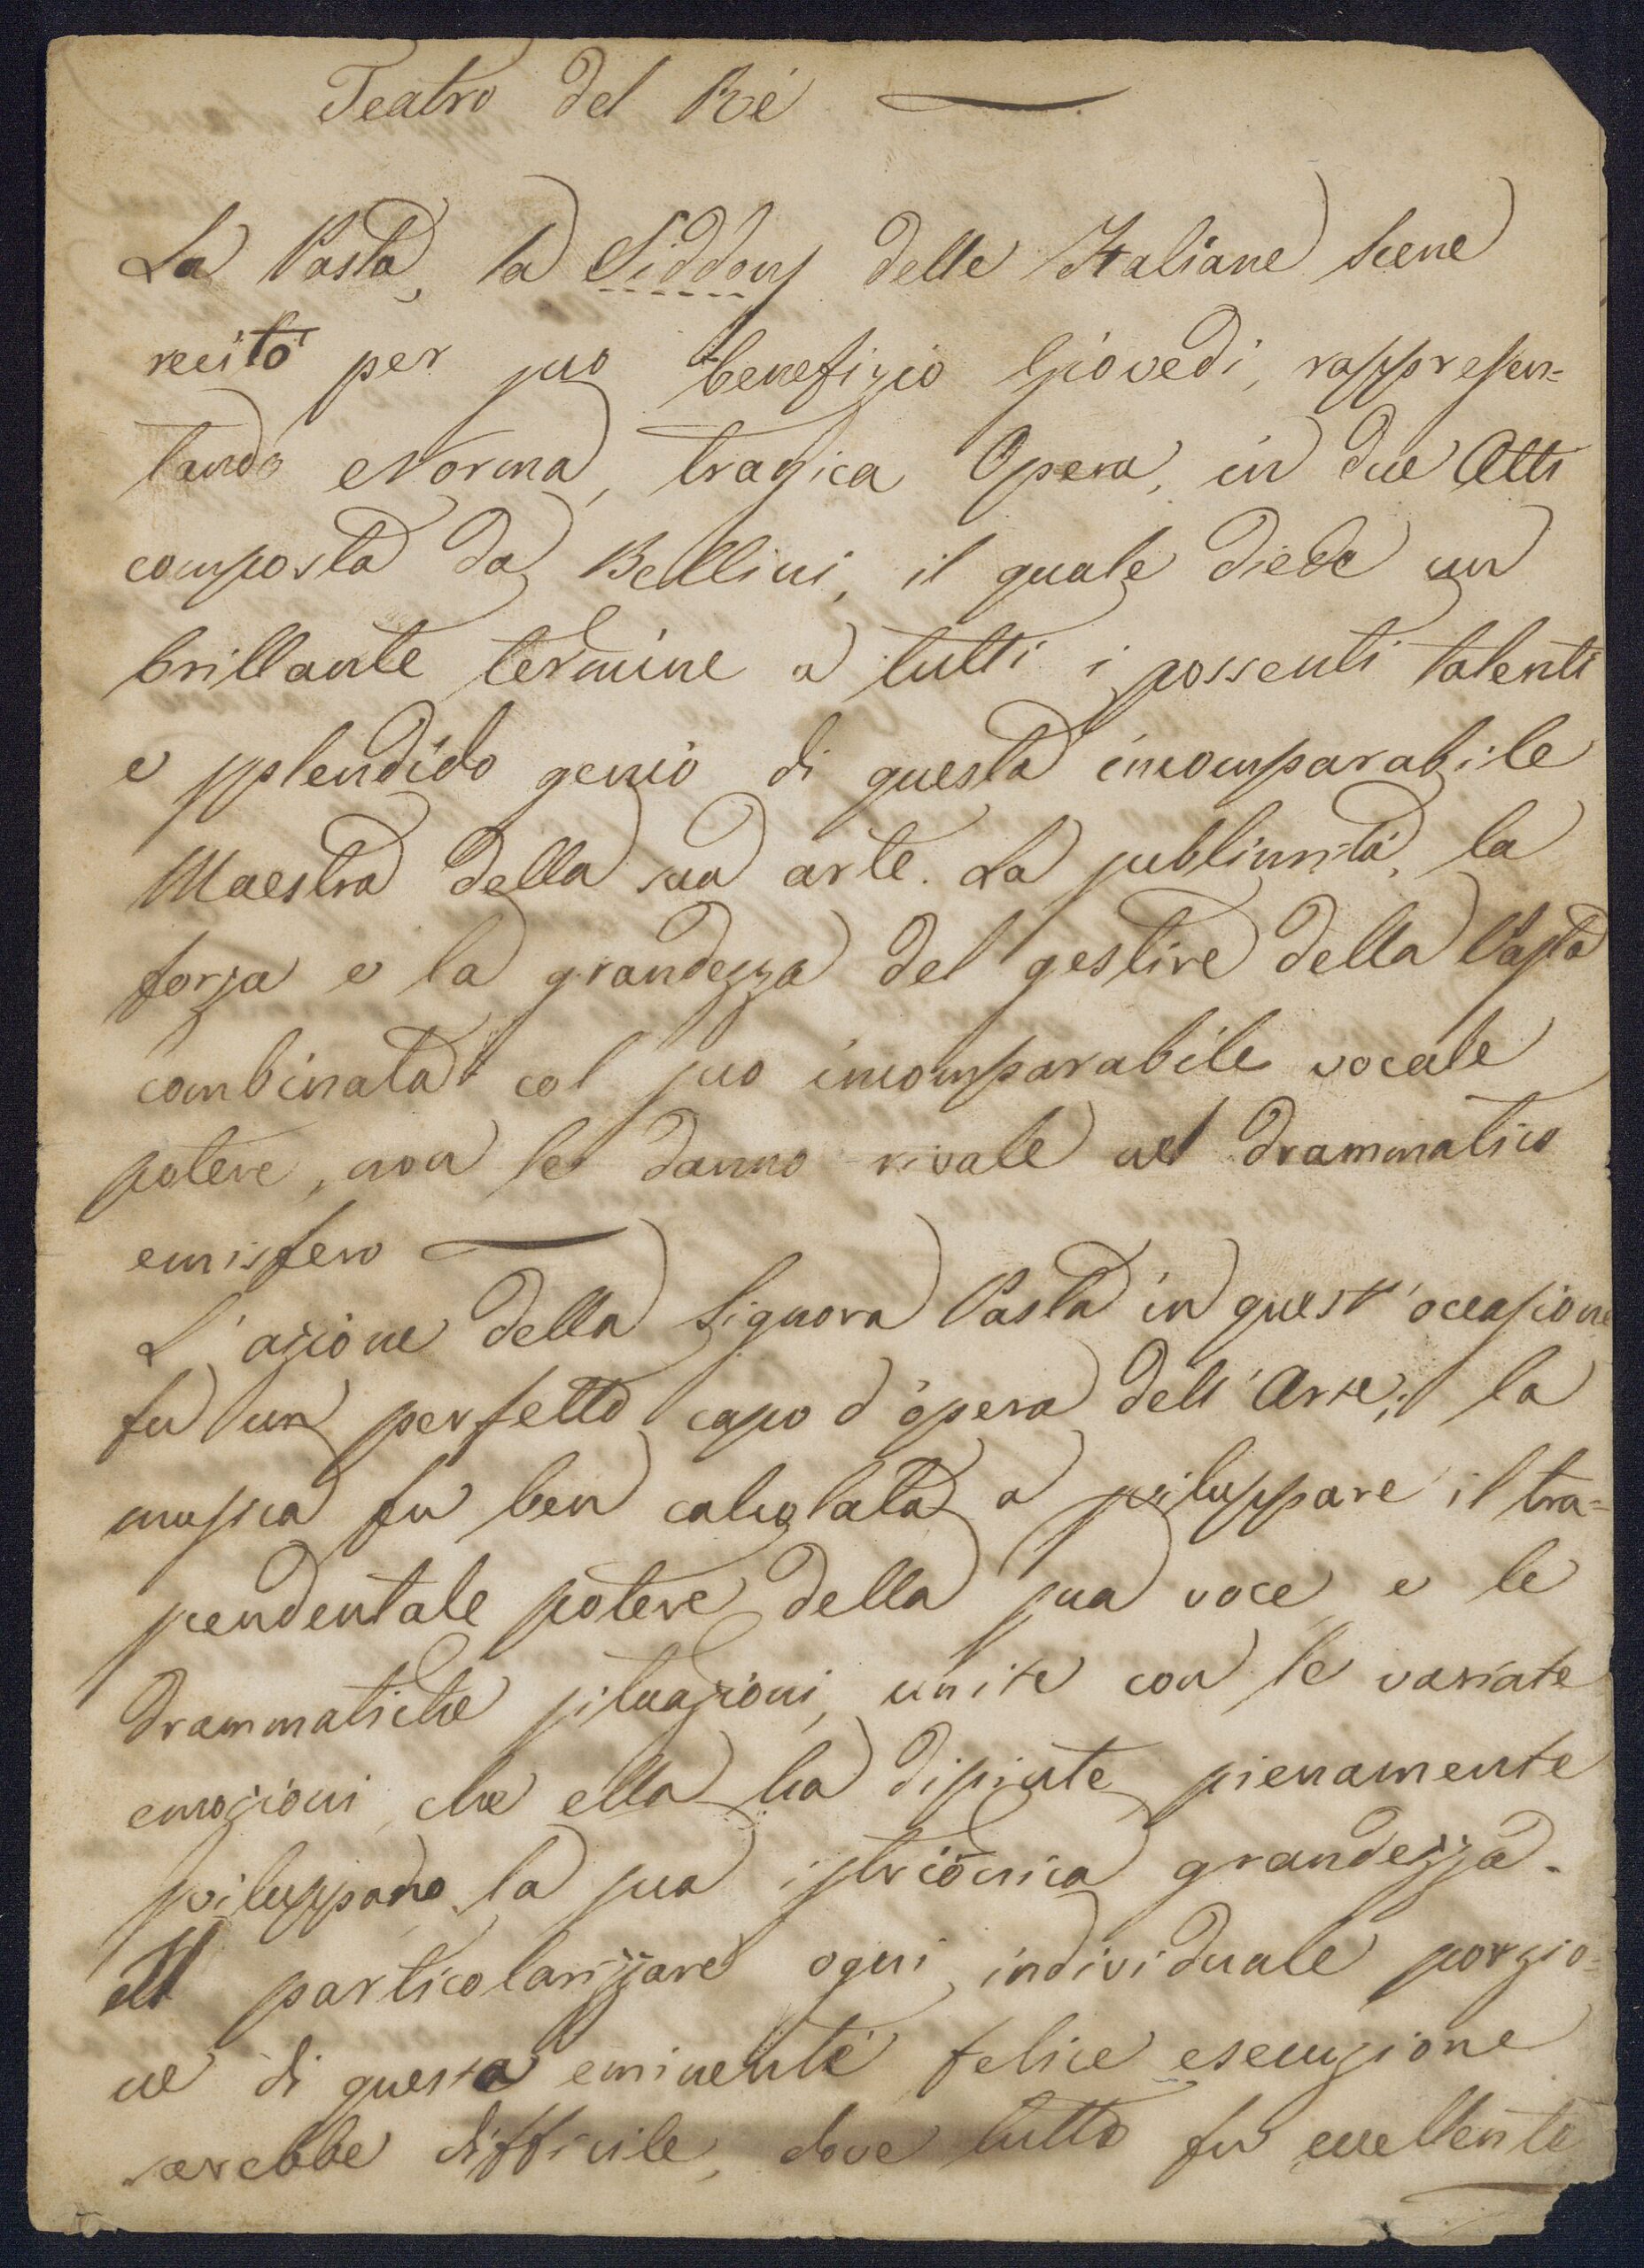 Teatro del Rè
La Pasta, la Siddons delle Italiane Scene
recitò per suo benefizio Giovedi, rappresen=
tando Norma, tragica Opera, in due Atti
composta da Bellini, il quale diede un
brillante termine a tutti i possenti talenti
e splendido genio di questa incomparabile
Maestra della sua arte. La sublimità, la
forza e la grandezza del gestire della Pasta
combinata col suo incomparabile vocale
potere, non le danno rivale nel drammatico
emisfero
L'azione della Signora Pasta in quest'occasione
fu un perfetto capo d'opera dell'Arte; la
musica fu ben calcolata a sviluppare il tra=
scendentale potere della sua voce e le
drammatiche situazioni, unite con le variate
emozioni, che ella ha dipinte pienamente
sviluppano la sua istrionica grandezza.
Il particolarizzare ogni individuale porzio=
ne di questa eminente felice esecuzione
sarebbe difficile, dove tutto fu eccellente